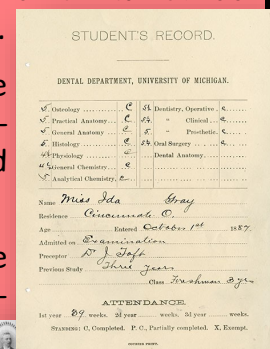 STUDENT'S RECORD.
DENTAL DEPARTMENT, UNIVERSITY OF MICHIGAN.
5 Osteology .... C 5¼ Dentistry, Operative . c
5 Practical Anatomy... C 5¼ " Clinical .. c
5 General Anatomy .. C 5 " Prosthetic. c
5 Histology .... C 5¼ Oral Surgery .. c
Physiology .... C Dental Anatomy....
General Chemistry. C
5 Analytical Chemistry, c
Name Miss Ida Gray
Residence Cincinnati O.
Age .... Entered October 1st 1887.
Admitted on Examination
Preceptor D. J. Taft
Previous Study Three Years
Class Freshman 3 yrs
ATTENDANCE.
1st year 89 weeks. 2d year weeks. 3d year weeks.
STANDING: C, Completed. P C, Partially completed. X, Exempt.